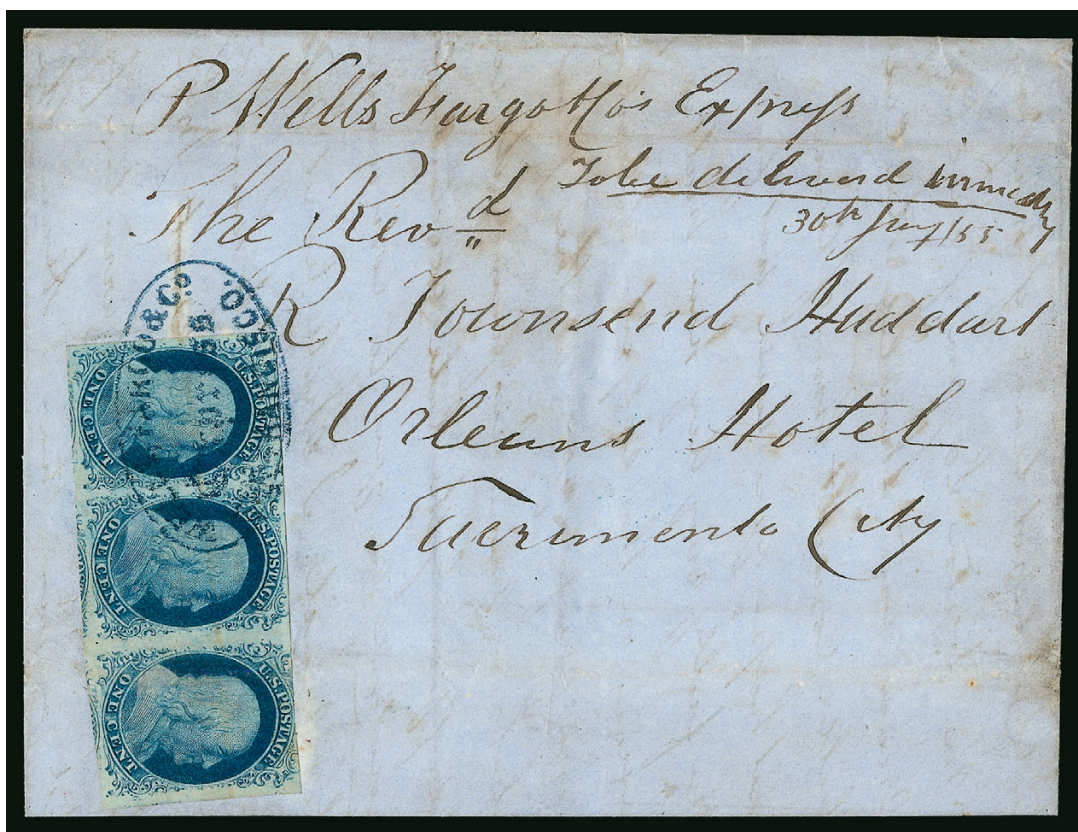 P Wells Fargo & Co's Express
To be delivered immedtly
30th Jany/55
The Revd
R Townsend Huddart
Orleans Hotel
Sacramento City
& Co
CO.
U.S. POSTAGE
ONE CENT
U.S. POSTAGE
ONE CENT
U.S. POSTAGE
ONE CENT